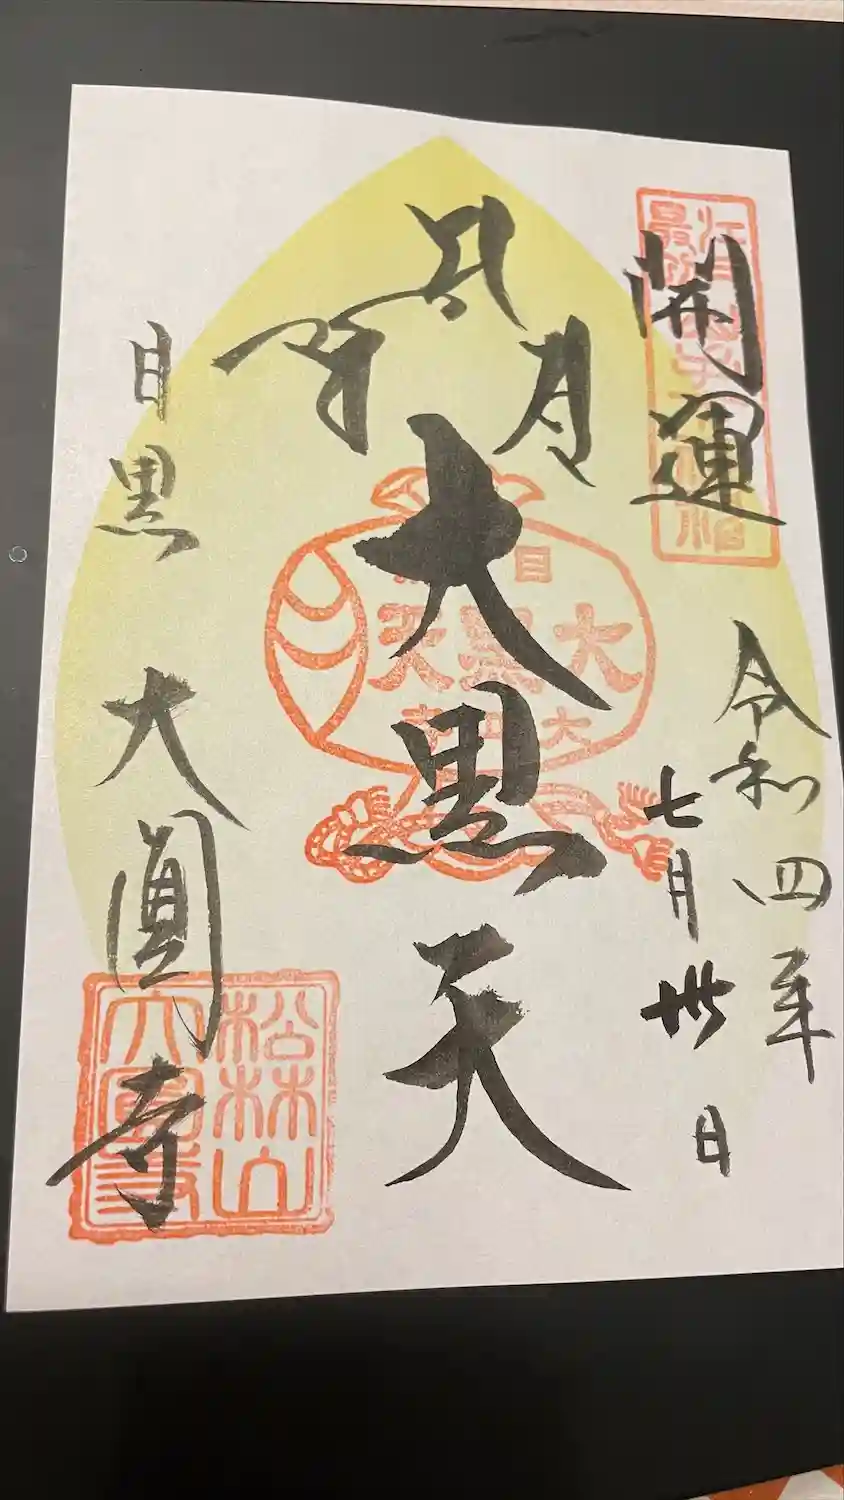 開運
令和四年
七月卅日
大黒天
目黒 大圓寺
大黒天
松林山
大圓寺